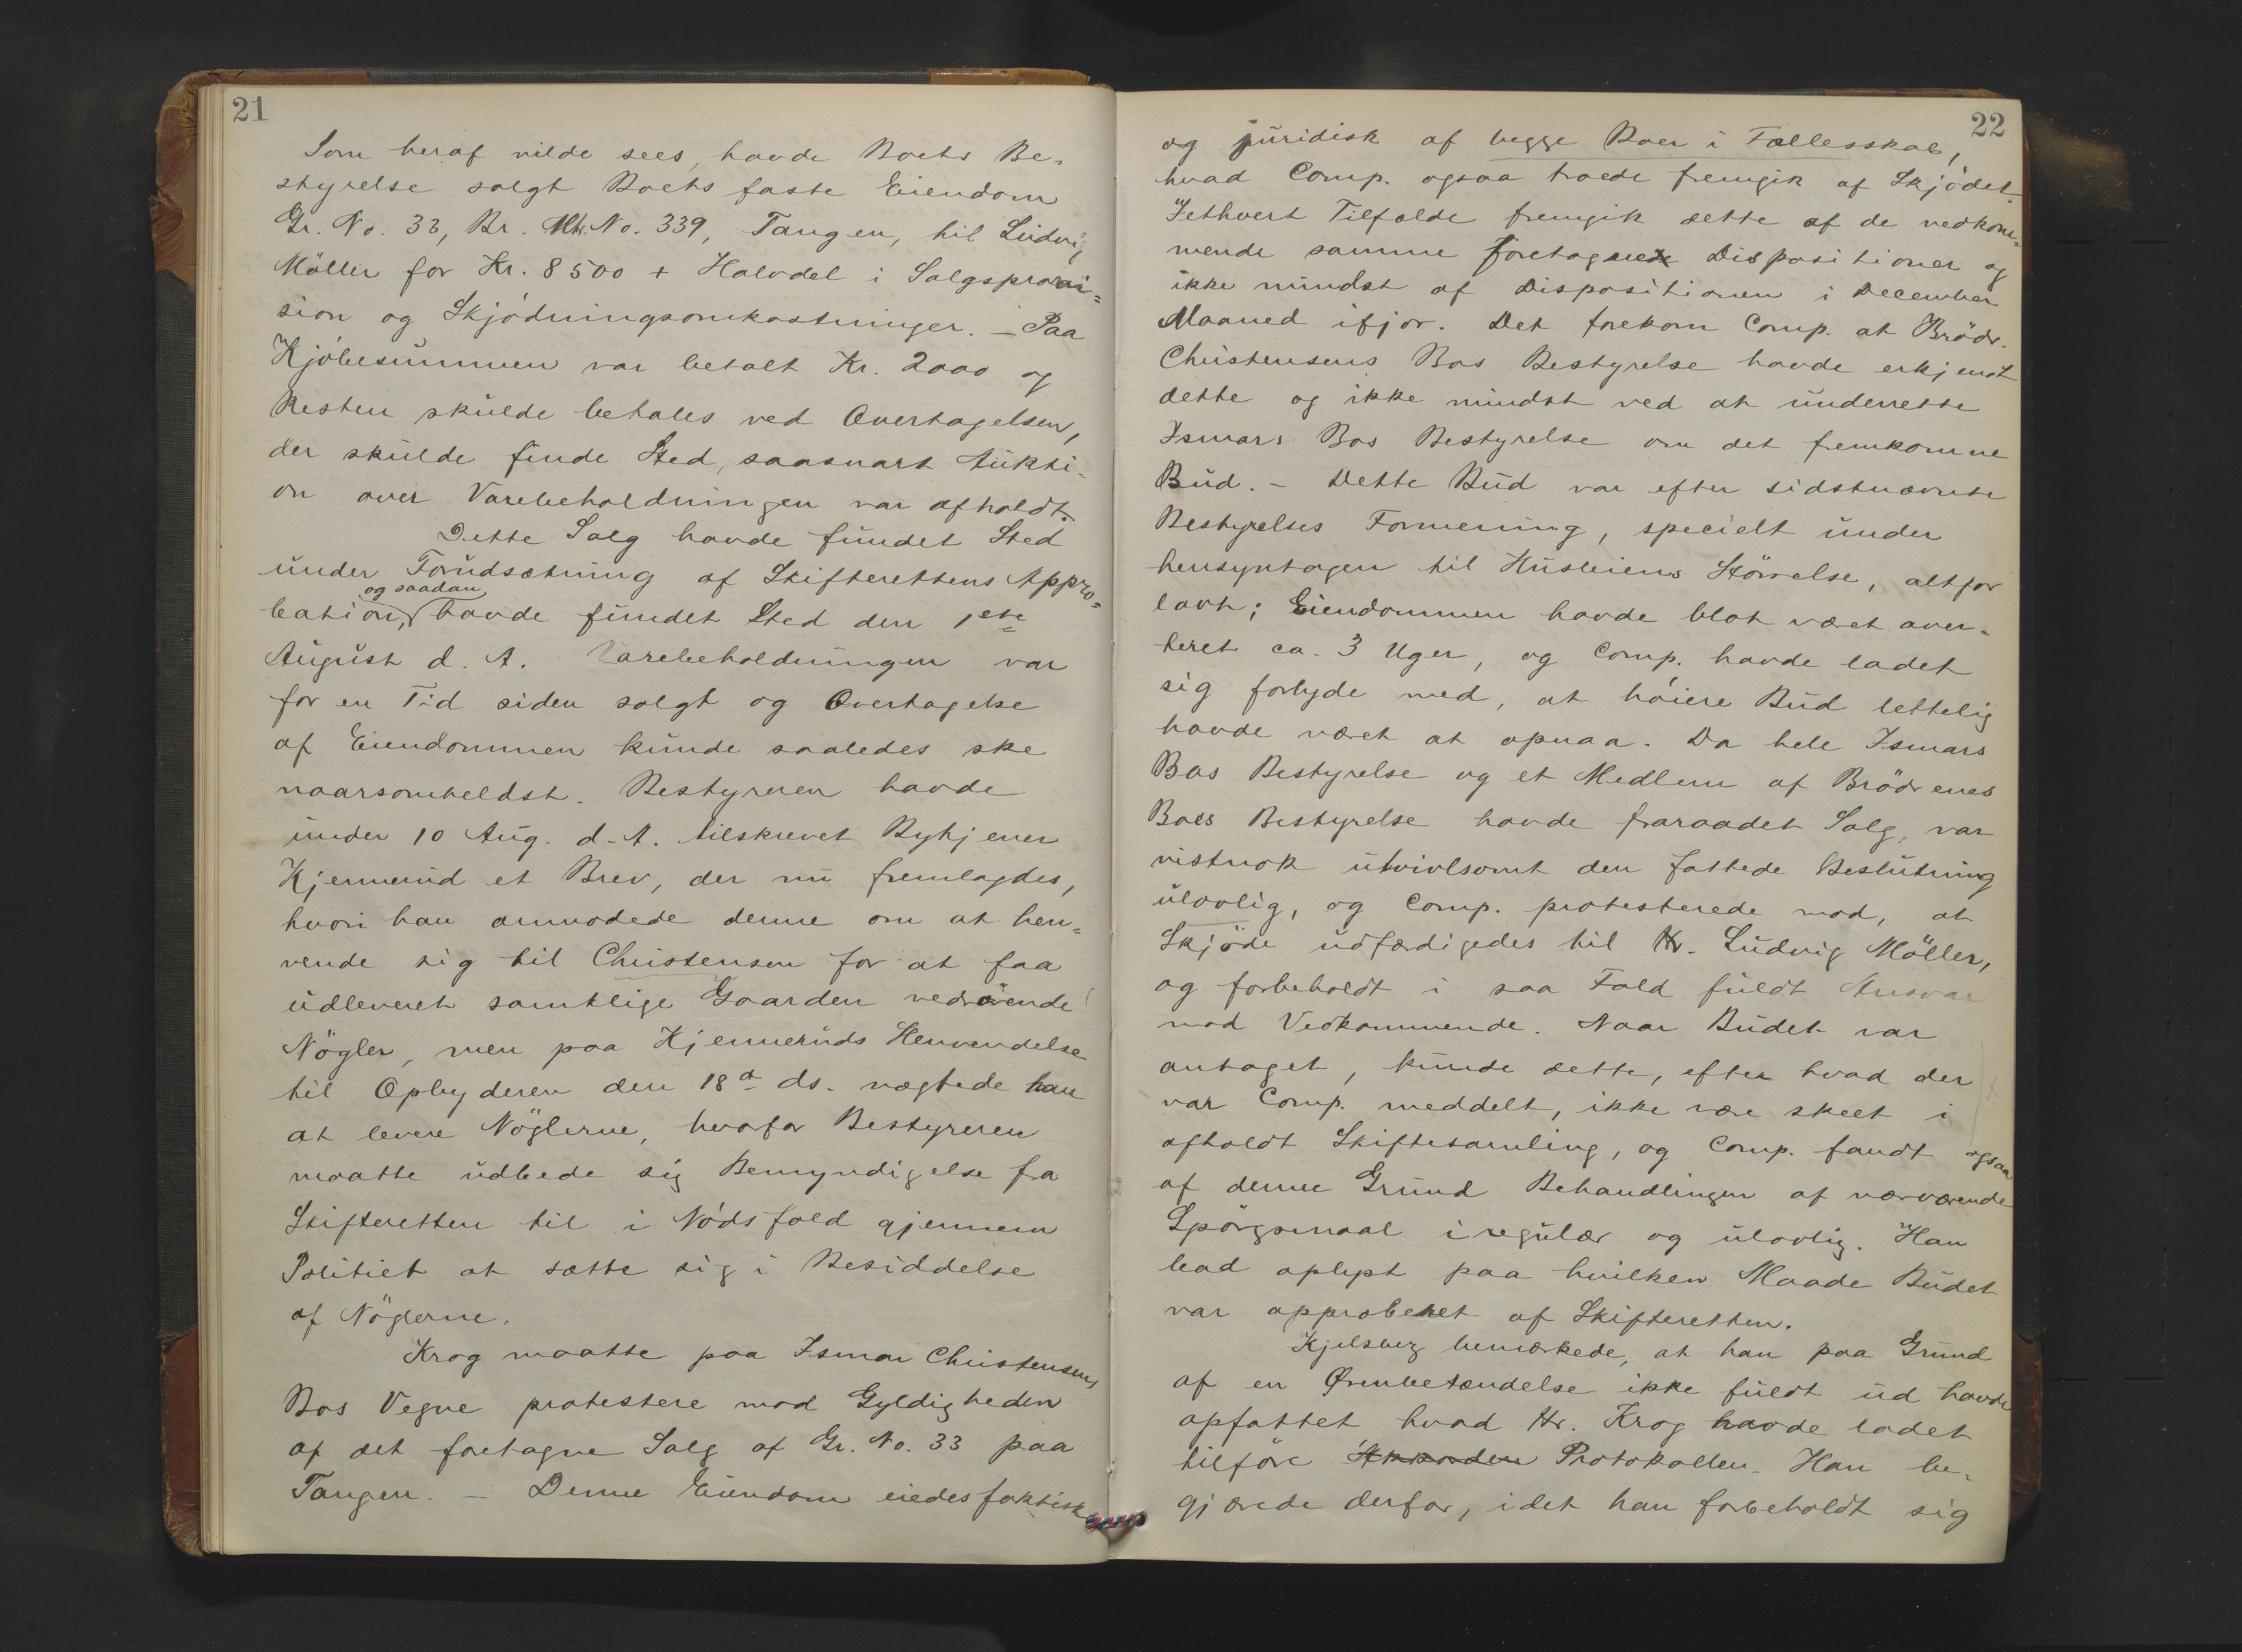 21
Som heraf vilde sees, havde Boets Be-
styrelse solgt Boets faste Eiendom
Gr. No. 33, Br. Mt. No. 339, Tangen, til Ludvig
Möller for Kr. 8500 + Halvdel i Salgsprovi=
sion og Skjödningsomkostninger. – Paa
Kjöbesummen var betalt Kr. 2000 og
Resten skulde betales ved Overtagelsen,
der skulde finde Sted, saasnart Aukti-
on over Varebeholdningen var afholdt.
Dette Salg havde fundet Sted
under Forudsætning af Skifterettens Appro=
og saadan
bation, havde fundet Sted den 1ste
August d. A. Varebeholdningen var
for en Tid siden solgt og Overtagelse
af Eiendommen kunde saaledes ske
naarsomheldst. Bestyreren havde
under 10 Aug. d. A. tilskrevet Byhjener
Kjennerud et Brev, der nu fremlagdes,
hvori han anmodede denne om at hen=
vende sig til Christensen for at faa
udleveret samtlige Gaarden vedrörende
Nögler, men paa Kjenneruds Henvendelse
til Opbyderen den 18d ds. nægtede han
at levere Nöglerne, hvorfor Bestyreren
maatte udbede sig Bemyndigelse fra
Skifteretten til i Nödsfald gjennem
Politiet at sætte sig i Besiddelse
af Nöglerne.
Krog maatte paa Ismar Christensens
Bos Vegne protestere mod Gyldigheden
af det foretagne Salg af Gr. No. 33 paa
Tangen. – Denne Eiendom eiedes faktisk
22
og juridisk af begge Boer i Fællesskab,
hvad Comp. ogsaa troede fremgik af Skjödet.
Iethvert Tilfælde fremgik dette af de vedkom=
mende samme foretagne Dispositioner og
ikke mindst af Dispositionen i December
Maaned ifjor. Det forekom Comp. at Brödr.
Christensens Bos Bestyrelse havde erkjendt
dette og ikke mindst ved at underrette
Ismars Bos Bestyrelse om det fremkomne
Bud. – Dette Bud var efter sidstnævnte
Bestyrelses Formening, specielt under
hensyntagen til Husleiens Störrelse, altfor
lavt; Eiendommen havde blot været aver-
teret ca. 3 Uger, og Comp. havde ladet
sig forlyde med, at höiere Bud lettelig
havde været at opnaa. Da hele Ismars
Bos Bestyrelse og et Medlem af Brödrenes
Boes Bestyrelse havde fraraadet Salg, var
vistnok utvivlsomt den fattede Beslutning
ulovlig, og Comp. protesterede mod, at
Skjöde udfærdigedes til Hr. Ludvig Möller,
og forbeholdt i saa Fald fuldt Ansvar
mod Vedkommende. Naar Budet var
antaget, kunde dette, efter hvad der
var Comp. meddelt, ikke være skeet i
afholdt Skiftesamling, og Comp. fandt ogsaa
af denne Grund Behandlingen af nærværende
Spörgsmaal iregulær og ulovlig. Han
bad oplyst paa hvilken Maade Budet
var approberet af Skifteretten.
Kjelsberg bemærkede, at han paa Grund
af en Ørenbetændelse ikke fuldt ud havde
opfattet hvad Hr. Krog havde ladet
tilföre Protokollen. Han be-
gjærede derfor, idet han forbeholdt sig